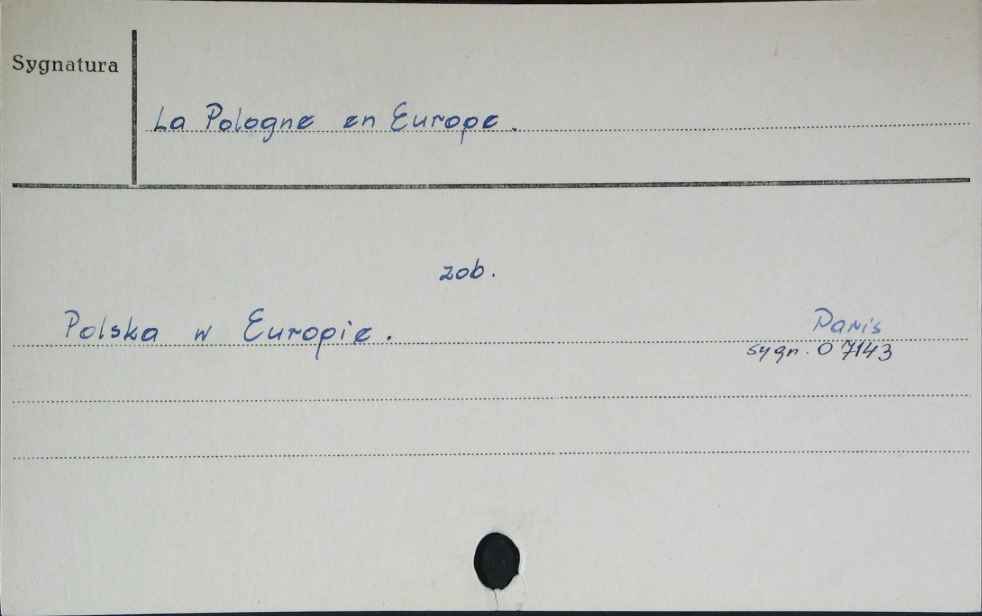 Sygnatura
La Pologne en Europe.
zob.
Polska w Europie. Paris
sygn. O 7143